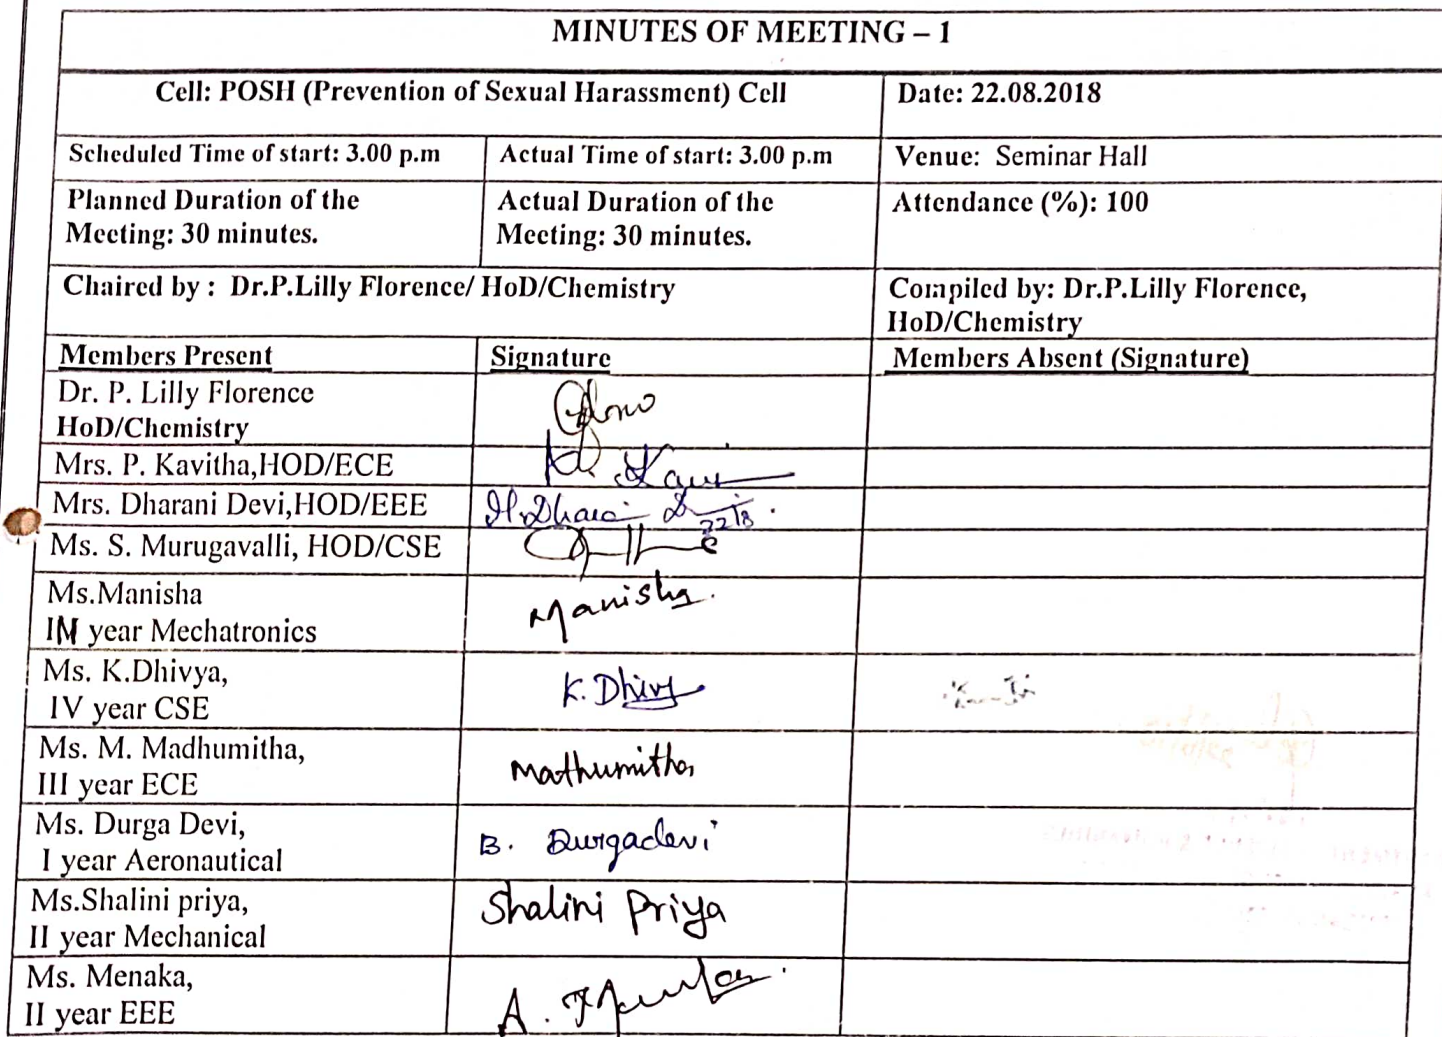 MINUTES OF MEETING – 1
Cell: POSH (Prevention of Sexual Harassment) Cell Date: 22.08.2018
Scheduled Time of start: 3.00 p.m Actual Time of start: 3.00 p.m Venue: Seminar Hall
Planned Duration of the
Meeting: 30 minutes.
Actual Duration of the
Meeting: 30 minutes.
Attendance (%): 100
Chaired by : Dr.P.Lilly Florence/ HoD/Chemistry
Compiled by: Dr.P.Lilly Florence,
HoD/Chemistry
Members Present Signature Members Absent (Signature)
Dr. P. Lilly Florence
HoD/Chemistry
Mrs. P. Kavitha,HOD/ECE
Mrs. Dharani Devi,HOD/EEE
22/8
Ms. S. Murugavalli, HOD/CSE
Ms.Manisha
year Mechatronics
Manisha.
Ms. K.Dhivya,
IV year CSE
K. Dhivy
Ms. M. Madhumitha,
III year ECE
Mathumitha
Ms. Durga Devi,
I year Aeronautical
B. Durgadevi
Ms.Shalini priya,
II year Mechanical
Shalini Priya
Ms. Menaka,
II year EEE